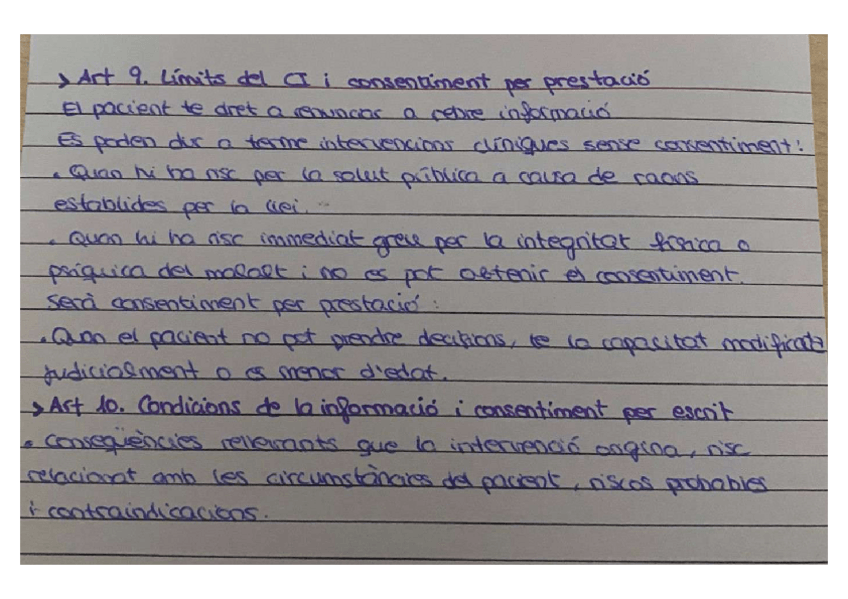 > Art 9. Límits del CI i consentiment per prestació
El pacient te dret a renunciar a rebre informació
Es poden dur a terme intervencions clíniques sense consentiment:
• Quan hi ha risc per la salut pública a causa de raons
establides per la llei.
• Quan hi ha risc immediat greu per la integritat física o
psíquica del malalt i no es pot obtenir el consentiment.
Serà consentiment per prestació:
• Quan el pacient no pot prendre decisions, te la capacitat modificada
judicialment o es menor d'edat.
> Art 10. Condicions de la informació i consentiment per escrit
• Conseqüències rellevants que la intervenció origina, risc
relacionat amb les circumstàncies del pacient, riscos probables
i contraindicacions.